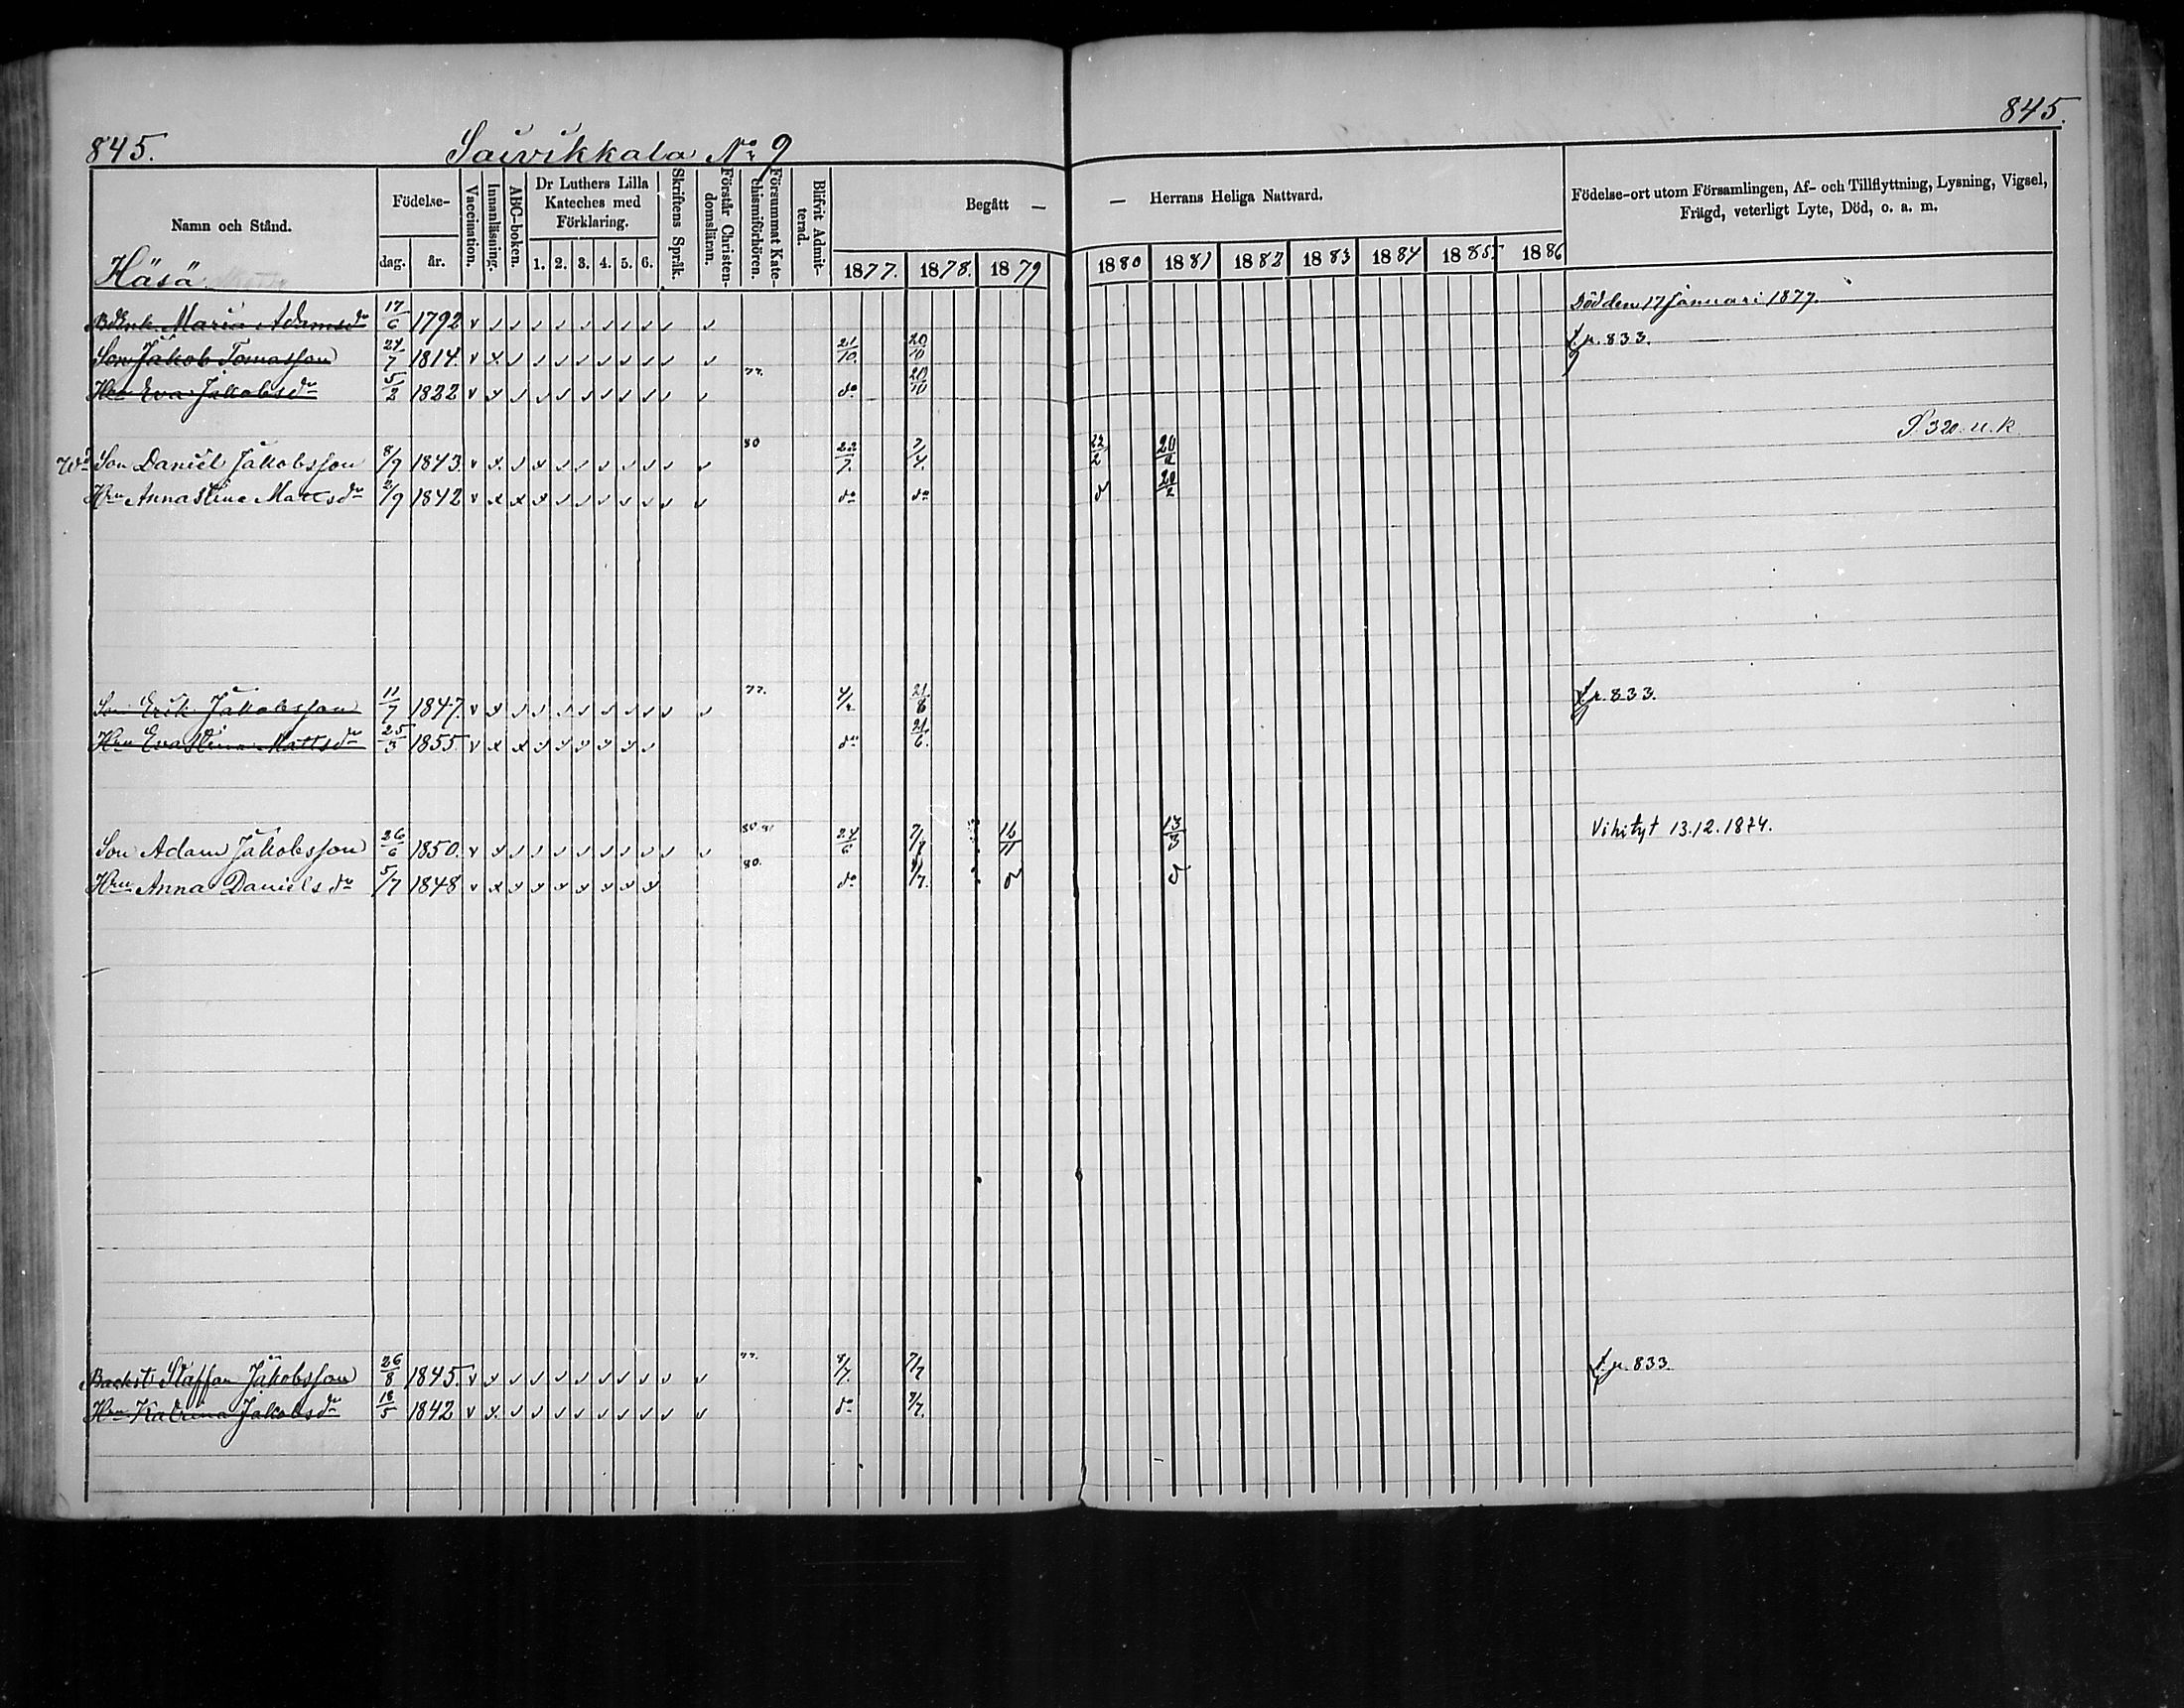 845.
Saivikkala No 9
845.
Namn och Stånd.
Födelse-
dag. år.
Vaccination.
Innanläsning.
ABC-boken.
Dr Luthers Lilla Kateches med Förklaring.
1. 2. 3. 4. 5. 6.
Skriftens Språk.
Förstår Christendomslärnn.
Försummat Katechismiförhören.
Blifvit Admitterad.
Begått —
— Herrans Heliga Nattvard.
1877. 1878. 1879 1880 1881 1882 1883 1884 1885 1886
Födelse-ort utom Församlingen, Af- och Tillflyttning, Lysning, Vigsel, Frägd, veterligt Lyte, Död, o. a. m.
Häsä
Maria Adamsdr 17/6 1792 Död den 17 Januari 1877.
Son Jakob Tomasson 24/7 1814. 21/10. 20/10 p. 833.
Hru Eva Jakobsdr 5/2 1822 77. do 20/10
P. 320. u. k.
Son Daniel Jakobsson 8/9 1843. 80 22/7. 7/4. 22/2 20/2
Hru Anna Stina Mattsdr 2/9 1842 do do d 20/2
Son Erik Jakobsson 11/7 1847. 77. 21/8 p. 833.
Hru Eva Stina Mattsdr 25/3 1855 do 21/6.
Son Adam Jakobsson 26/6 1850. 80. 81 24/6 16/11 13/3 Vihityt 13.12.1874.
Hru Anna Danielsdr 5/7 1848 80. do d d
Backst. Staffan Jakobsson 26/8 1845. 77. 7/7 p. 833.
Hru Katrina Jakobsdr 18/5 1842 do 8/7.